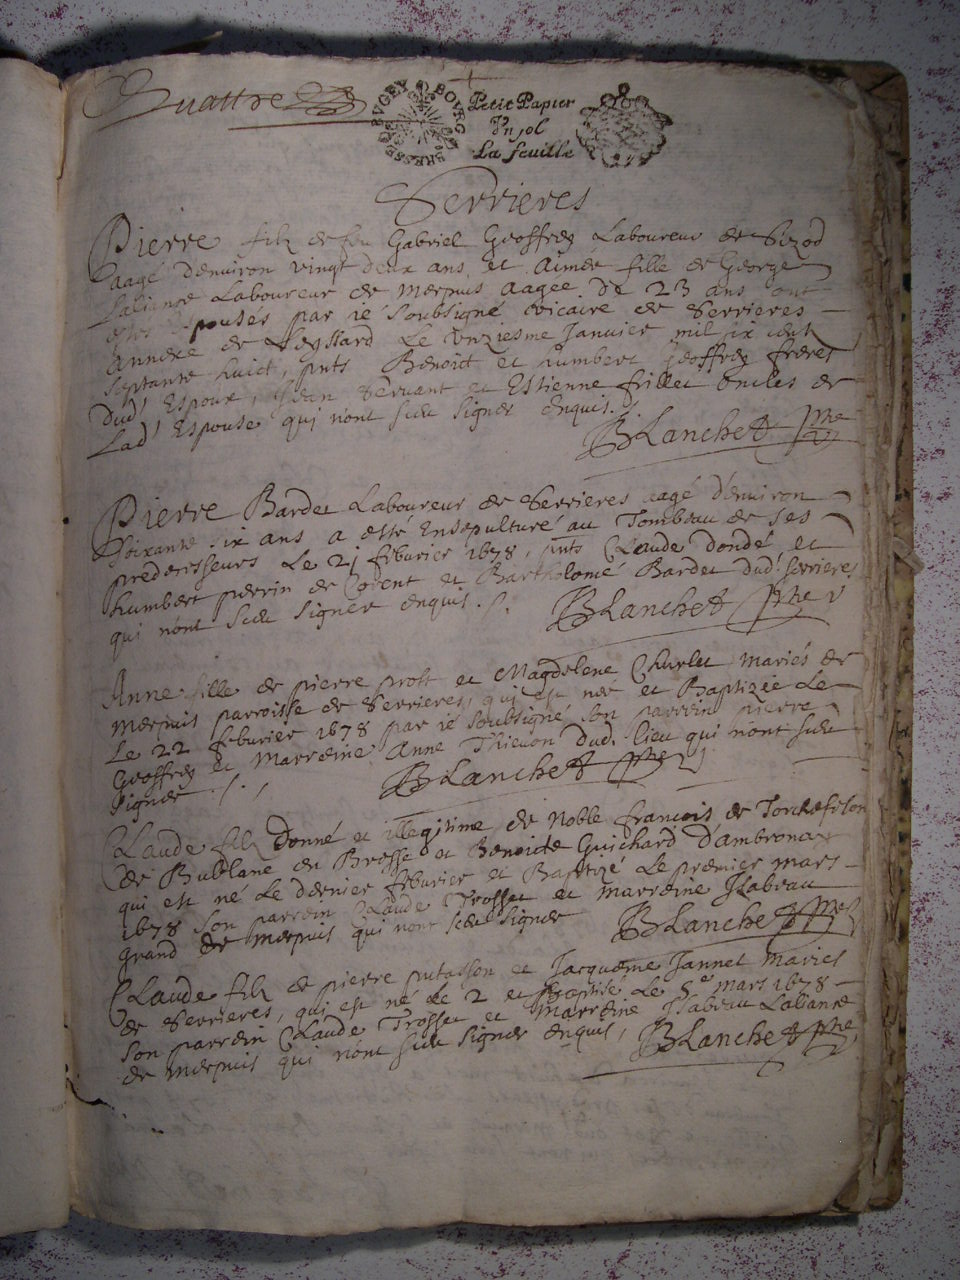 Quattre
BVGEY BOVRG BRESSE
Petit Papier
Vn sol
La feuille
Serrieres
Pierre filz de feu Gabriel Geoffrey Laboureur de
aagé d'environ vingt deux ans et Aimée fille de George
Laliance Laboureur de Merpuis aagee de 23 ans ont
espousés par ié soubsigné vicaire de Serrieres
Annexe de Leyssard Le unziesme Janvier mil six cent
septante huict, pnts Benoict et humbert Geoffrey freres
dud' Espoux, Jean Servant et Estienne frillet oncles de
Lad' Espouse qui n'ont sceu signer enquis./.
BLanchet pbre
Pierre Bardet Laboureur de Serrieres aagé d'environ
soixante six ans a esté Ensepulturé au Tombeau de ses
predecesseurs Le 21 febvrier 1678, pnts Claude dondé et
humbert perrin de et Bartholomé Bardet dud. serrieres
qui n'ont sceu signer enquis ./.
BLanchet pbre
Anne fille de pierre prost et Magdelene Charlet mariés de
Merpuis parroisse de Serrieres, qui est née et Baptizée Le
Le 22 febvrier 1678 par ié soubsigné son parrein pierre
Geoffrey et Marreine Anne Thievon dud. lieu qui n'ont sceu
signer ./.
BLanchet pbre
Claude filz donné et illegitime de Noble francois de Torchefelon
de Bublane en Brosse et Benoicte Guichard d'ambronax
qui est né le dernier febvrier et Baptizé Le premier mars
1678 son parrein Claude Trosset et marreine Isabeau
grand de Merpuis qui n'ont sceu signer
BLanchet pbre
Claude filz de pierre putasson et Jacqueme Jannet mariés
de Serrieres, qui est né le 2 et Baptisé Le 5e mars 1678
son parrein Claude Trosset et marreine Isabeau Laliance
de Merpuis qui n'ont sceu signer enquis,
BLanchet pbre